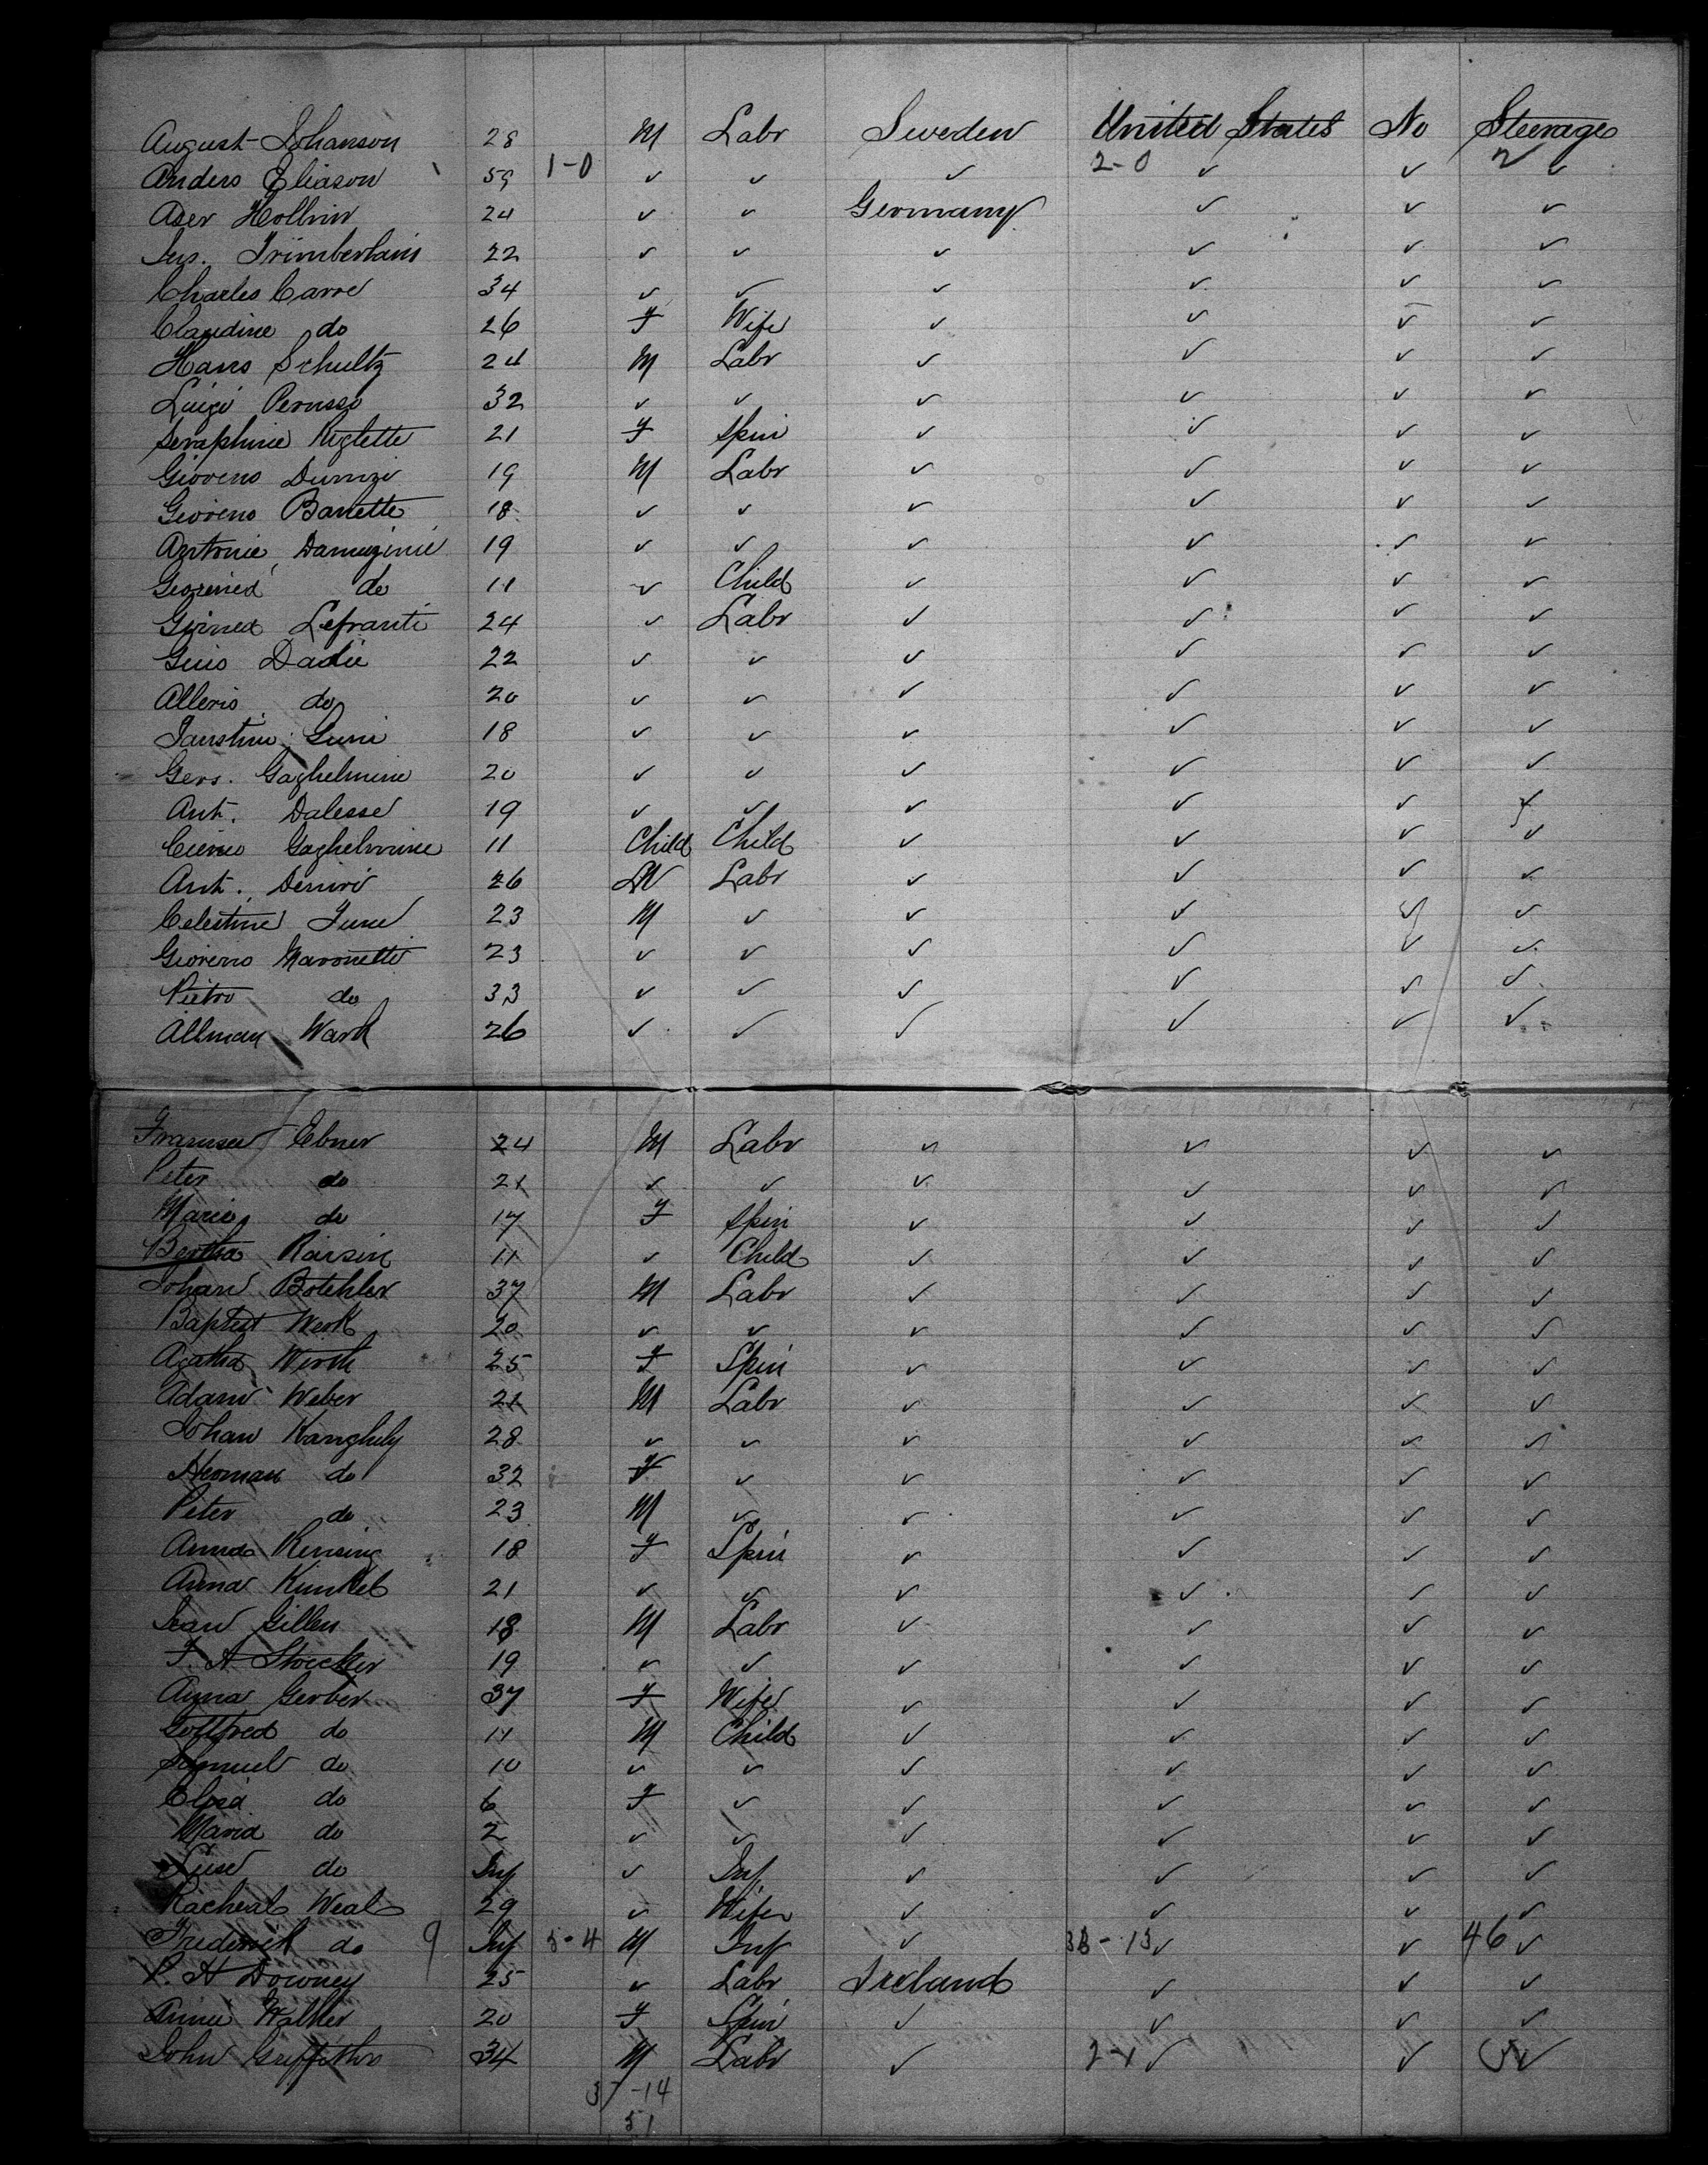 August Johanson 28 M Labr Sweden United States No Steerage
Anders Eliason 59 1-0 ✓ ✓ ✓ 2-0 ✓ ✓ 2 ✓
Aser Hollvin 24 ✓ ✓ Germany ✓ ✓ ✓
Trimberlain 22 ✓ ✓ ✓ ✓ ✓ ✓
Charles Carre 34 ✓ ✓ ✓ ✓ ✓ ✓
Claudine do 26 F Wife ✓ ✓ ✓ ✓
Hans Schultz 24 M Labr ✓ ✓ ✓ ✓
Luigi Perusse 32 ✓ ✓ ✓ ✓ ✓ ✓
Seraphine Riglette 21 F Spin ✓ ✓ ✓ ✓
Gioveno Dumzi 19 M Labr ✓ ✓ ✓ ✓
Gioveno Banette 18 ✓ ✓ ✓ ✓ ✓ ✓
Antonie Damuzinie 19 ✓ ✓ ✓ ✓ ✓ ✓
do 11 ✓ Child ✓ ✓ ✓ ✓
Lefranti 24 ✓ Labr ✓ ✓ ✓ ✓
Guis Dadie 22 ✓ ✓ ✓ ✓ ✓ ✓
Alleris do 20 ✓ ✓ ✓ ✓ ✓ ✓
Faustini Guni 18 ✓ ✓ ✓ ✓ ✓ ✓
Gers. Gaghelmine 20 ✓ ✓ ✓ ✓ ✓ ✓
Ant. Dalesse 19 ✓ ✓ ✓ ✓ ✓ ✓
Gaghelmine 11 Child Child ✓ ✓ ✓ ✓
Ant. Deniri 26 M Labr ✓ ✓ ✓ ✓
Celestine June 23 M ✓ ✓ ✓ ✓ ✓
Gioveno Maronetti 23 ✓ ✓ ✓ ✓ ✓ ✓
Pietro do 33 ✓ ✓ ✓ ✓ ✓ ✓
Allman Wark 26 ✓ ✓ ✓ ✓ ✓ ✓
Ebner 24 M Labr ✓ ✓ ✓ ✓
Peter do 21 ✓ ✓ ✓ ✓ ✓ ✓
Marie do 17 F Spin ✓ ✓ ✓ ✓
Bertha Raisin 11 ✓ Child ✓ ✓ ✓ ✓
Johan Botehler 37 M Labr ✓ ✓ ✓ ✓
Baptist Werk 20 ✓ ✓ ✓ ✓ ✓ ✓
Agatha Wirth 25 F Spin ✓ ✓ ✓ ✓
Adam Weber 21 M Labr ✓ ✓ ✓ ✓
Johan Kanghely 28 ✓ ✓ ✓ ✓ ✓ ✓
Herman do 32 F ✓ ✓ ✓ ✓ ✓
Peter do 23 M ✓ ✓ ✓ ✓ ✓
Anna Rensing 18 F Spin ✓ ✓ ✓ ✓
Anna Kunkel 21 ✓ ✓ ✓ ✓ ✓ ✓
Jean Gillen 18 M Labr ✓ ✓ ✓ ✓
F. A Stoecker 19 ✓ ✓ ✓ ✓ ✓ ✓
Anna Gerber 37 F Wife ✓ ✓ ✓ ✓
Gottfred do 11 M Child ✓ ✓ ✓ ✓
Samuel do 10 ✓ ✓ ✓ ✓ ✓ ✓
Elisa do 6 F ✓ ✓ ✓ ✓ ✓
Maria do 2 ✓ ✓ ✓ ✓ ✓ ✓
Luise do Inf ✓ Inf ✓ ✓ ✓ ✓
Racheal Weal 29 ✓ Wife ✓ ✓ ✓ ✓
Frederick do 9 Inf 5-4 M Inf ✓ 33-13 ✓ ✓ 46 ✓
P. H Downey 25 ✓ Labr Ireland ✓ ✓ ✓
Annie Walker 20 F Spin ✓ ✓ ✓ ✓
John Griffiths 34 M Labr ✓ 2-1 ✓ ✓ ✓
37-14
51